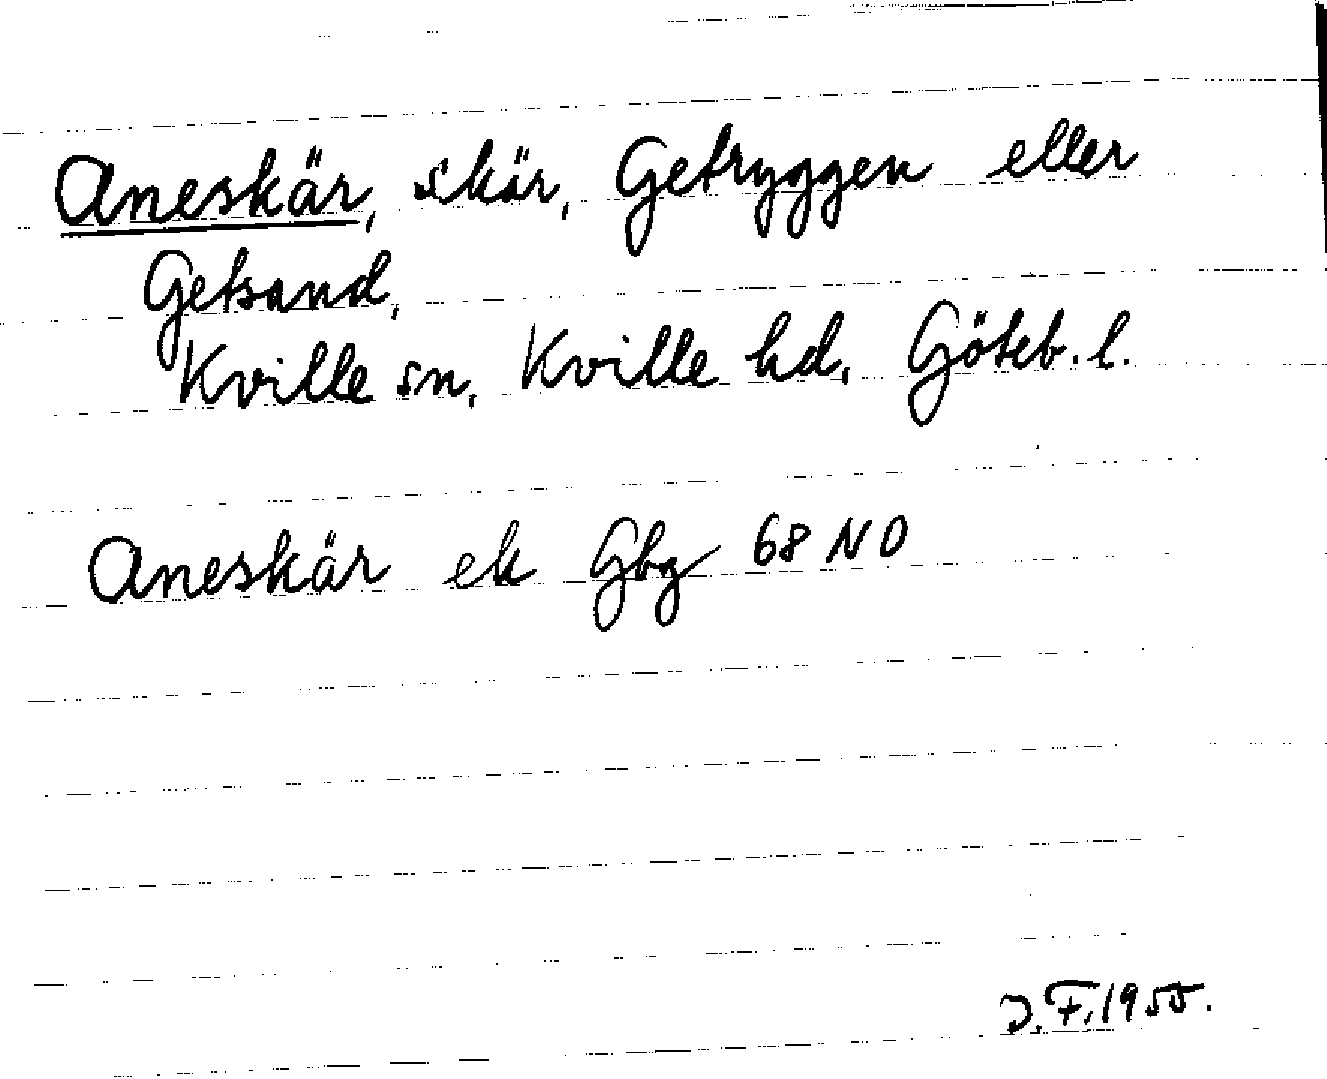 Aneskär, skär, Getryggen eller
Getsand,
Kville sn, Kville hd, Göteb. l.
Aneskär ek Gbg 68 NO
D.F. 1955.